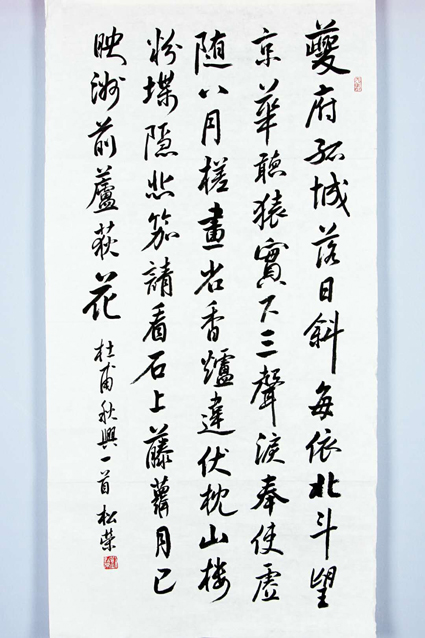 夔府孤城落日斜每依北斗望
京華聽猿實下三聲淚奉使虛
随八月槎畫省香爐違伏枕山樓
粉堞隱悲笳請看石上藤蘿月已
映洲前蘆荻花
杜甫秋興一首 松榮